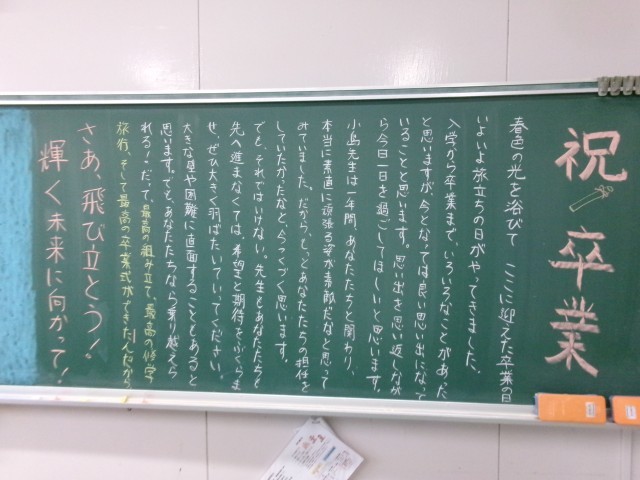 祝 卒業
春色の光を浴びて ここに迎えた卒業の日
いよいよ旅立ちの日がやってきました。
入学から卒業まで、いろいろなことがあった
と思いますが、今となっては良い思い出になって
いることと思います。思い出を思い返しなが
ら今日一日を過ごしてほしいと思います。
小島先生は一年間、あなたたちと関わり、
本当に素直に頑張る姿が素敵だなと思って
みていました。だから、もっとあなたたちの担任を
していたかったなと、今つくづく思います。
でも、それではいけない。先生もあなたたちも
先へ進まなくては。希望と期待をふくらま
せ、ぜひ大きく羽ばたいていってください。
大きな壁や困難に直面することもあると
思います。でも、あなたたちなら乗り越えら
れる！だって、最高の組み立て、最高の修学
旅行、そして最高の卒業式ができたんだから
さあ、飛び立とう！
輝く未来に向かって！